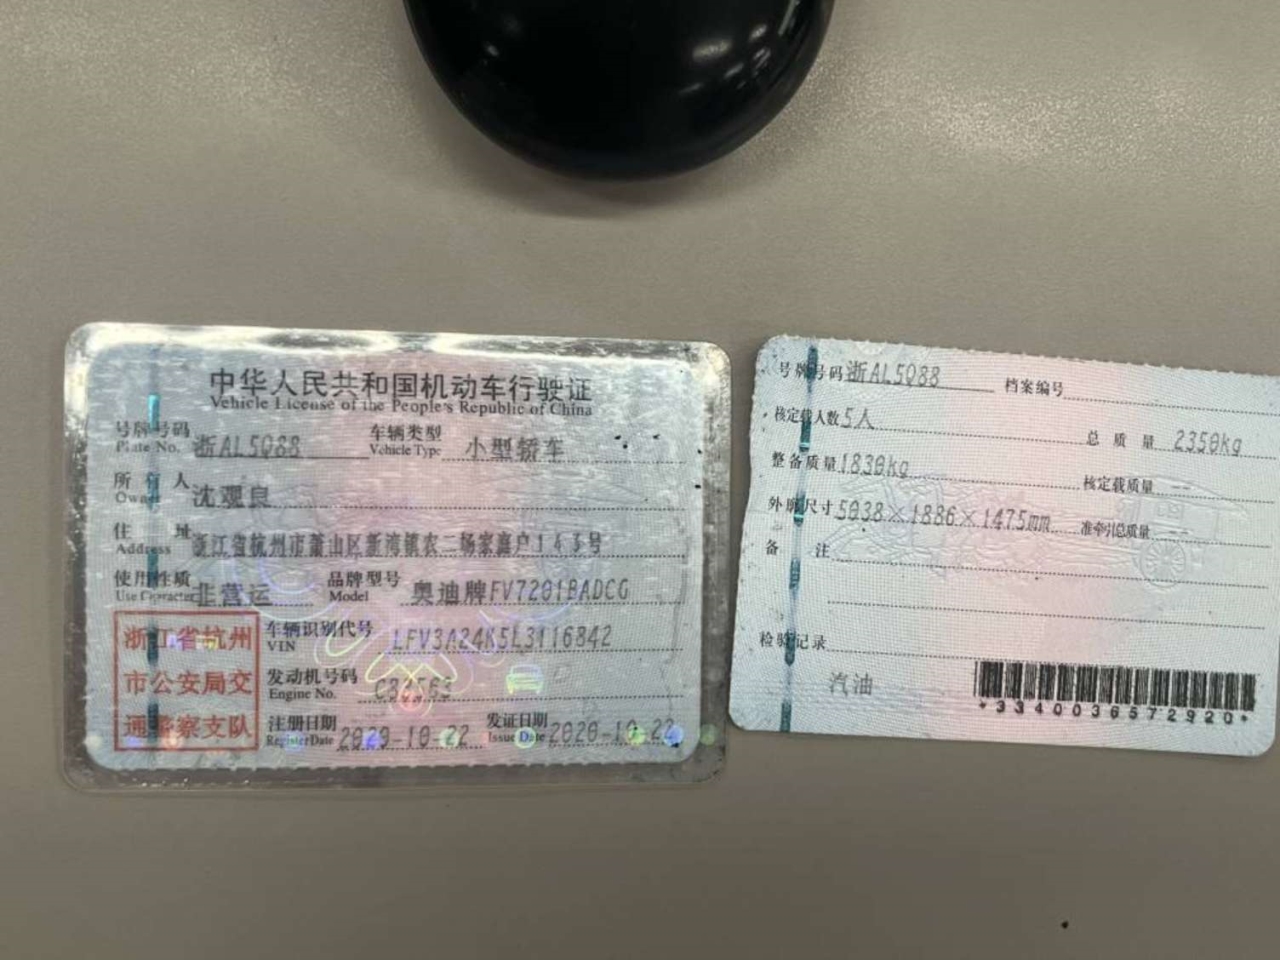 中华人民共和国机动车行驶证
Vehicle License of the People's Republic of China
号牌号码 Plate No. 浙AL5Q88 车辆类型 Vehicle Type 小型轿车
所有人 Owner 沈观良
住址 Address 浙江省杭州市萧山区新湾镇农二场家嘉户143号
使用性质 Use Character 非营运 品牌型号 Model 奥迪牌FV7201BADCG
浙江省杭州
市公安局交
通警察支队
车辆识别代号 VIN LFV3A24K5L3116842
发动机号码 Engine No.
注册日期 Register Date 2020-10-22 发证日期 Issue Date 2020-10-22
号牌号码 浙AL5Q88 档案编号
核定载人数 5人 总质量 2350kg
整备质量 1830kg 核定载质量 --
外廓尺寸 5038×1886×1475mm 准牵引总质量 --
备注
检验记录
汽油
*3340036572920*